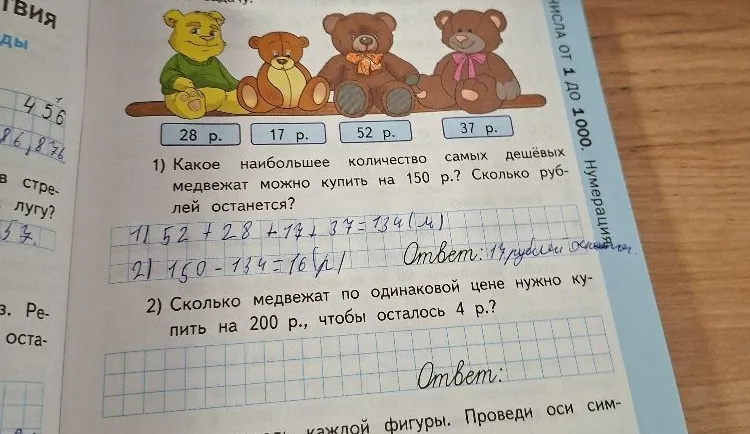 ТВИЯ
ды
456
86, 876
в стре-
лугу?
57.
з. Ре-
оста-
28 р. 17 р. 52 р. 37 р.
1) Какое наибольшее количество самых дешёвых
медвежат можно купить на 150 р.? Сколько руб-
лей останется?
1) 52 + 28 + 17 + 37 = 134 (м)
2) 150 - 134 = 16 (р)
Ответ: рублей
2) Сколько медвежат по одинаковой цене нужно ку-
пить на 200 р., чтобы осталось 4 р.?
Ответ:
каждой фигуры. Проведи оси сим-
ЧИСЛА ОТ 1 ДО 1000. Нумерация